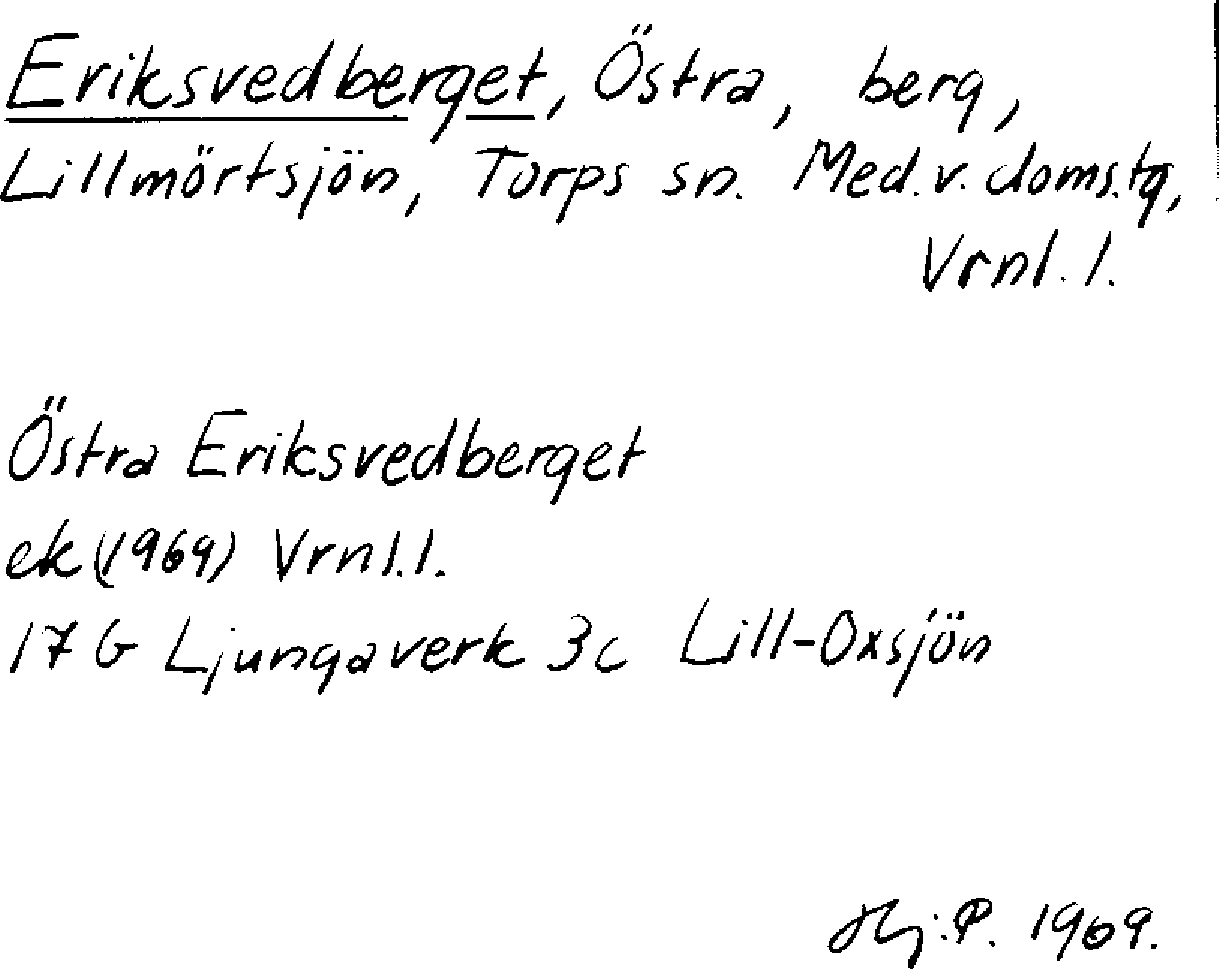 Eriksvedberget, Östra, berg,
Lillmörtsjön, Torps sn. Med.v. doms.tg,
Vrnl. l.
Östra Eriksvedberget
ek (1969) Vrnl.l.
17 G Ljungaverk 3c Lill-Oxsjön
Hj.P. 1969.